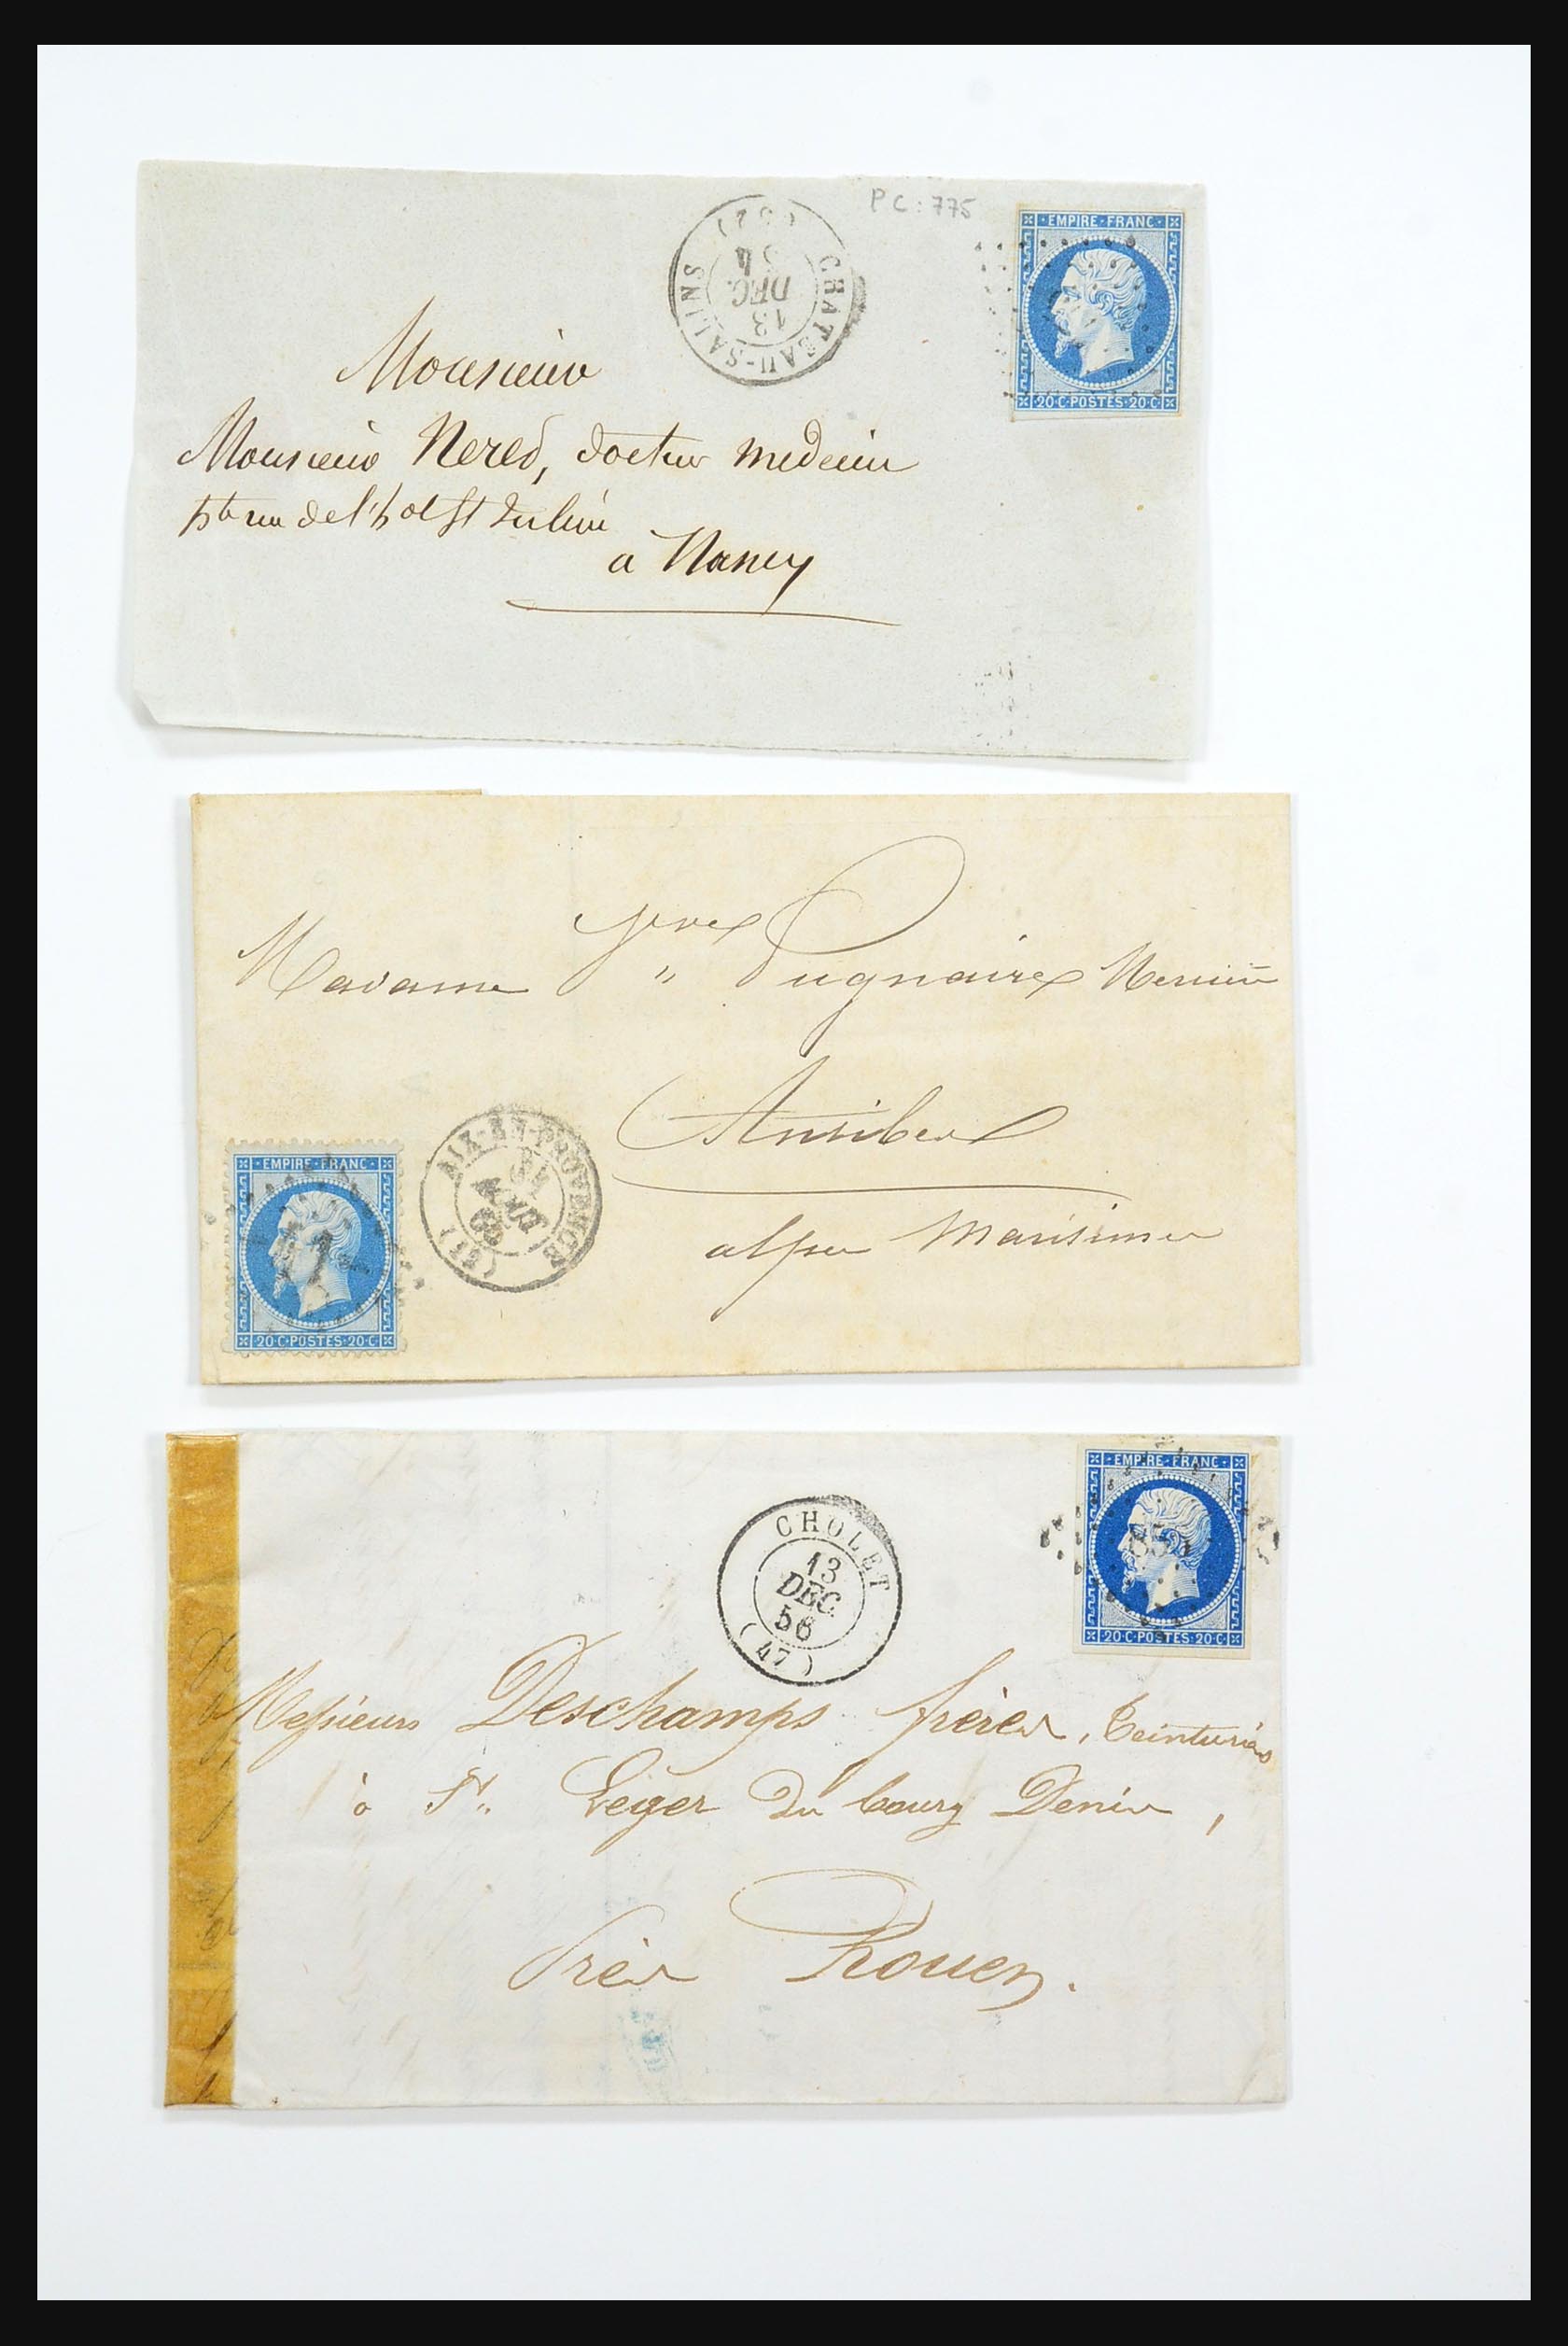 P C : 775
CHATEAU-SALINS
13
DEC.
54
(52)
EMPIRE·FRANC
20·C·POSTES·20·C
Monsieur
Monsieur Nered, docteur medecin
à Nancy
Madame Dugnaire
Antibes
alpes Maritimes
AIX-EN-PROVENCE
EMPIRE·FRANC
20·C·POSTES·20·C
CHOLET
13
DEC.
56
(47)
EMPIRE·FRANC
20·C·POSTES·20·C
Messieurs Deschamps frères, Teinturiers
à St. Léger du bourg Denis,
Près Rouen.